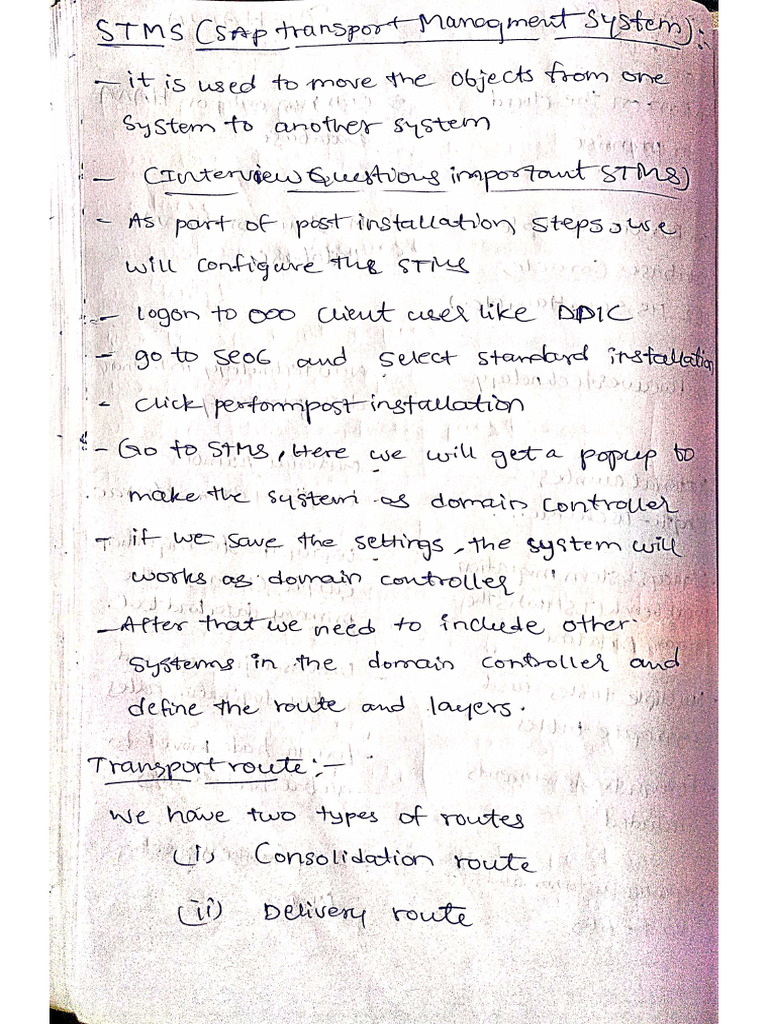 STMS (SAP transport Managment System):-
- it is used to move the objects from one
system to another system
- (Interview Questions important STMS)
- As part of post installation, steps, we
will configure the STMS
- logon to 000 client user like DDIC
- go to SE06 and select standard installation
- click perform post installation
- Go to STMS, Here we will get a popup to
make the system as domain controller
- if we save the settings, the system will
works as domain controller
- After that we need to include other
systems in the domain controller and
define the route and layers.
Transport route:-
we have two types of routes
(i) Consolidation route
(ii) Delivery route